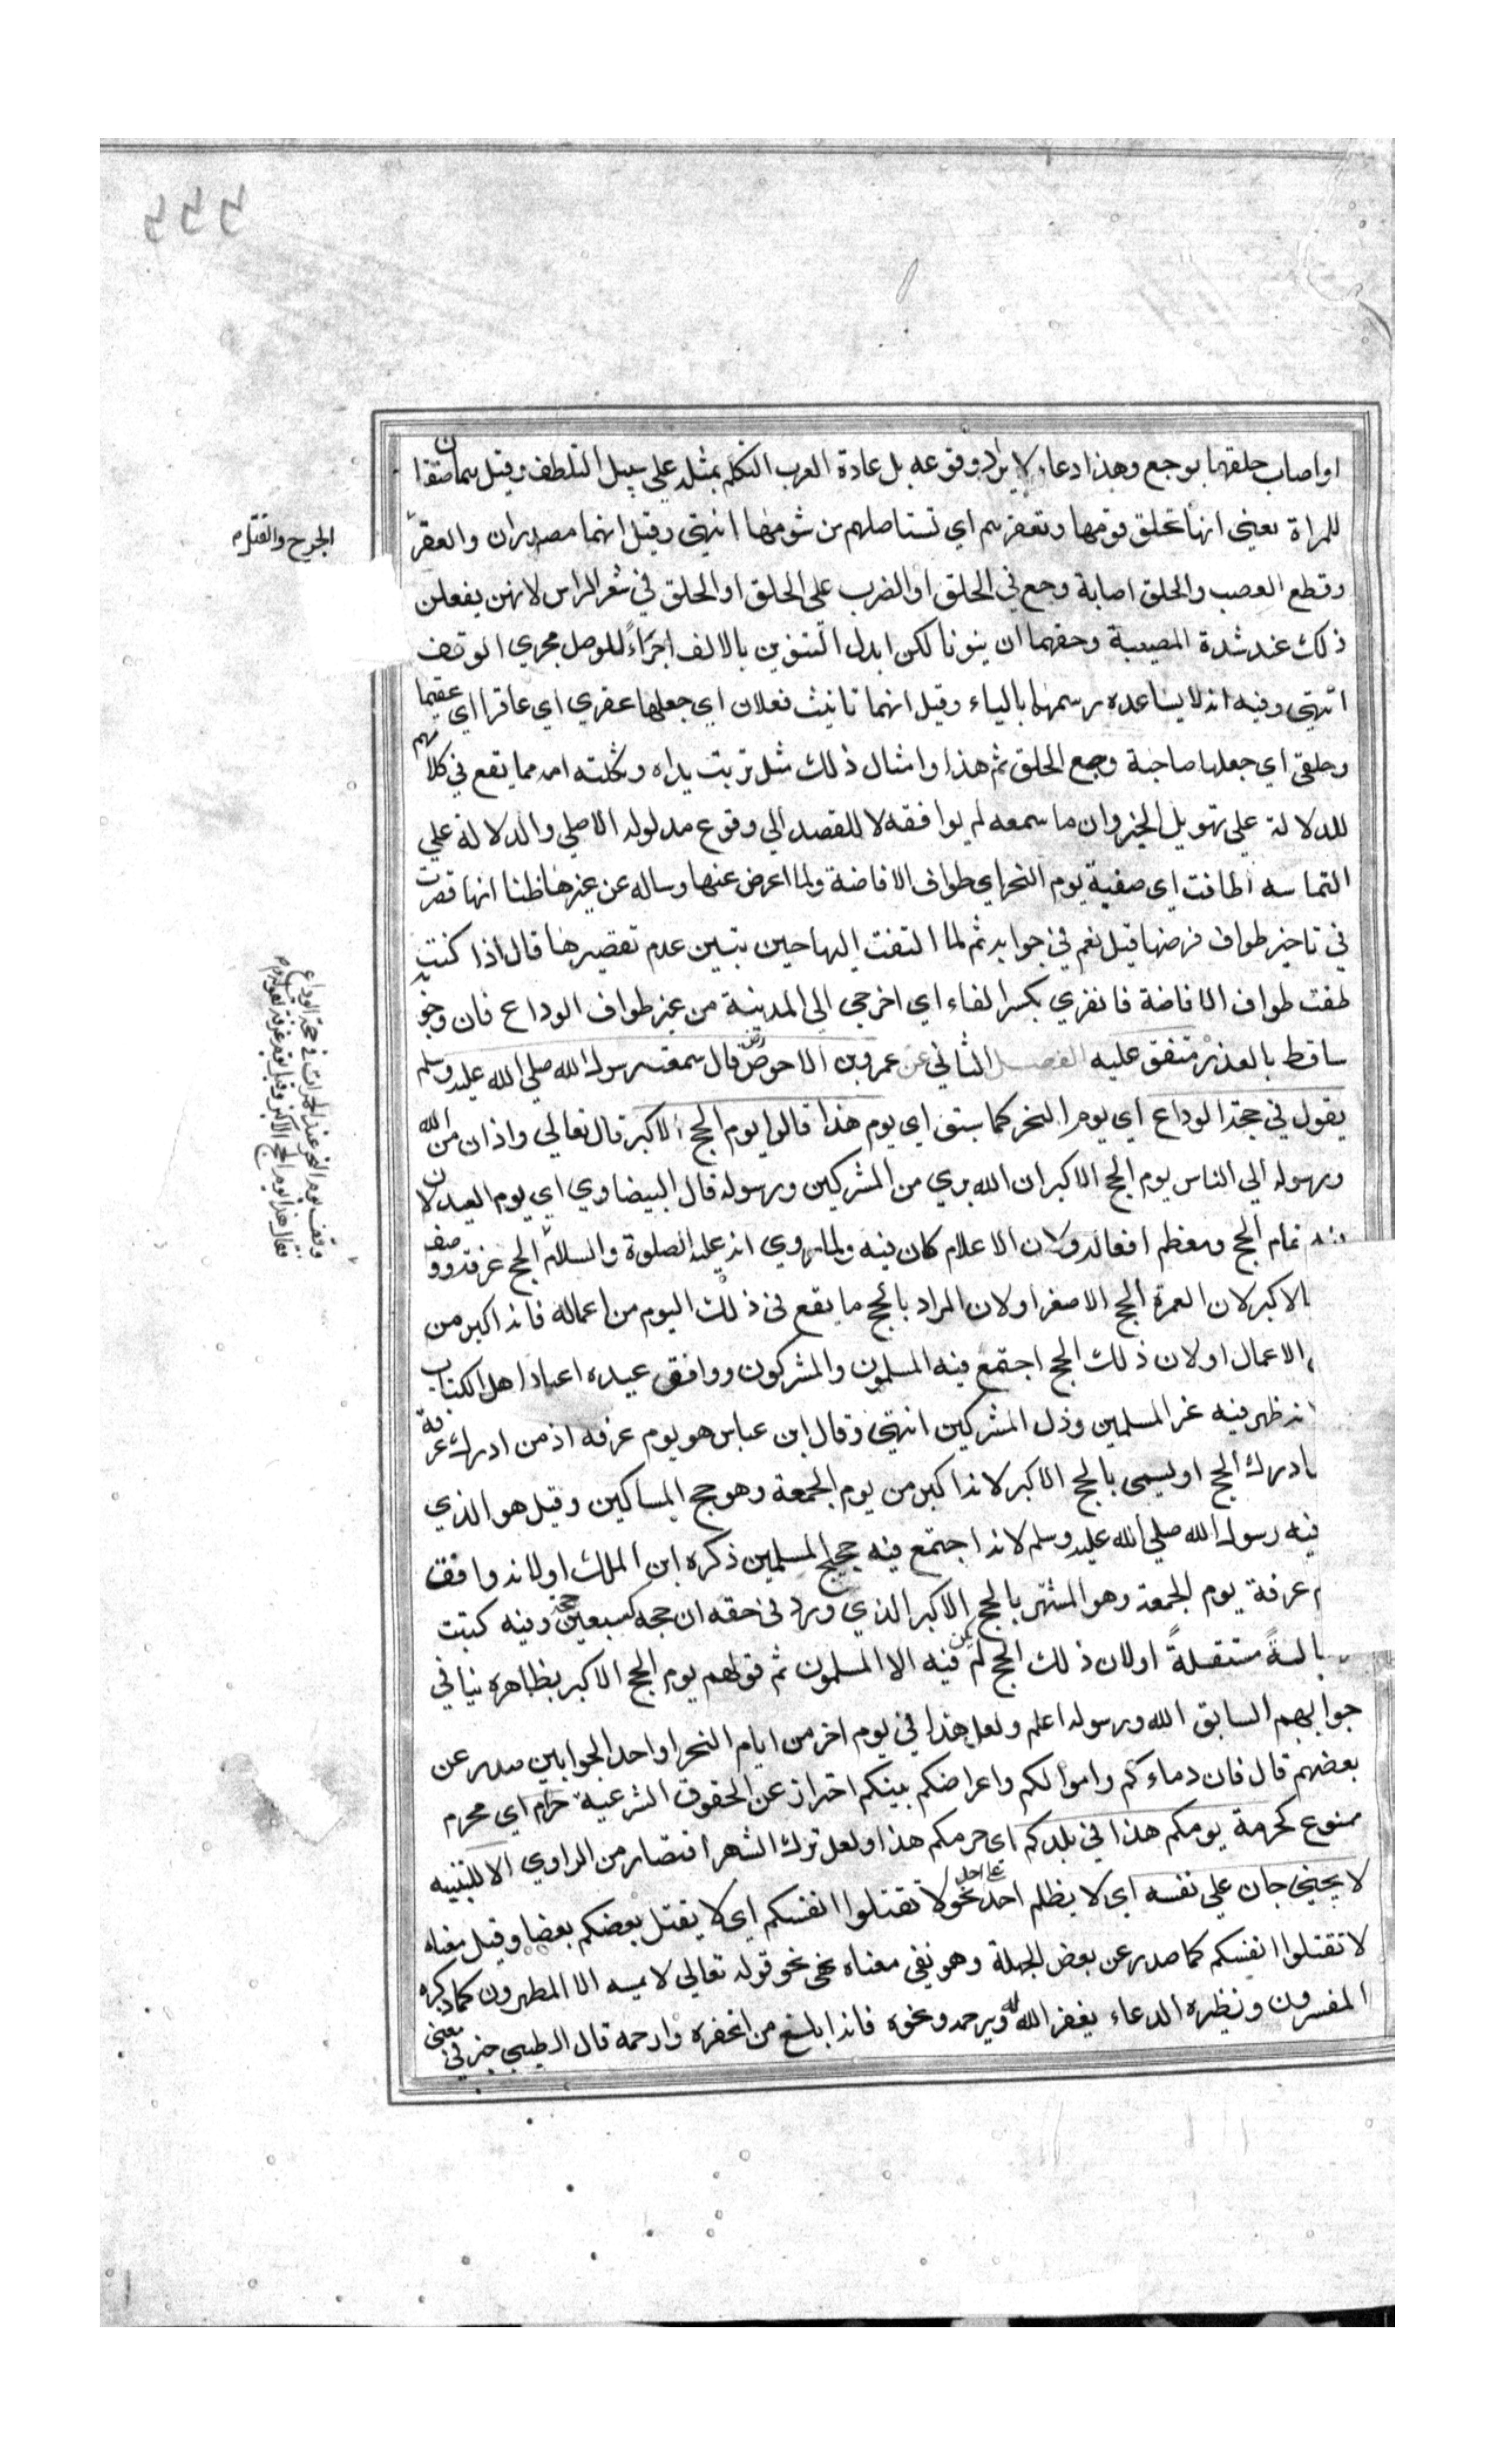 او اصاب حلقها بوجع وهذا دعاء لا يراد وقوعه بل عادة العرب التكلم بمثله علي سبيل التلطف وقيل هما صفتان
للمراة يعني انها تحلق قومها وتعقرهم اي تستاصلهم من شومها انتهى وقيل انهما مصدران والعقر
الجرح والقتل م
وقطع العصب والحلق اصابة وجع في الحلق او الضرب علي الحلق او الحلق في شعر الراس لانهن يفعلن
ذلك عند شدة المصيبة وحقهما ان ينونا لكن ابدل التنوين بالالف اجراءً للوصل مجري الوقف
انتهى وفيه انه لا يساعده رسمهما بالياء وقيل انهما تانيث فعلان اي جعلها عقري اي عاقرا اي عقيما
وحلقي اي جعلها صاحبة وجع الحلق ثم هذا وامثال ذلك مثل تربت يداه وثكلته امه مما يقع في كلامهم
للدلالة علي تهويل الخبر وان ما سمعه لم يوافقه لا للقصد الي وقوع مدلوله الاصلي والدلالة علي
التماسه اطافت اي صفية يوم النحر اي طواف الافاضة ولما اعرض عنها وساله عن غيرها ظنا انها قصرت
في تاخير طواف فرضها قيل نعم في جوابه ثم لما التفت اليها حين تبين عدم تقصيرها قال اذا كنت
طفت طواف الافاضة فانفري بكسر الفاء اي اخرجي الى المدينة من غير طواف الوداع فان وجوبه
ساقط بالعذر متفق عليه الفصل الثاني عن عمرو بن الاحوص رض قال سمعت رسول الله صلي الله عليه وسلم
يقول في حجة الوداع اي يوم النحر كما سبق اي يوم هذا قالوا يوم الحج الاكبر قال تعالي واذان من الله
ورسوله الي الناس يوم الحج الاكبر ان الله بري من المشركين ورسوله قال البيضاوي اي يوم العيد لان
فيه تمام الحج ومعظم افعاله ولان الاعلام كان فيه ولما روي انه عليه الصلوة والسلام الحج عرفة ووصف
وقف يوم النحر عند الجمرات في حجة الوداع
فقال هذا يوم الحج الاكبر وقيل يوم عرفة لقوله م
بالاكبر لان العمرة الحج الاصغر او لان المراد بالحج ما يقع في ذلك اليوم من اعماله فانه اكبر من
الاعمال او لان ذلك الحج اجتمع فيه المسلمون والمشركون ووافق عيده اعياد اهل الكتاب
انه ظهر فيه عز المسلمين وذل المشركين انتهى وقال ابن عباس هو يوم عرفه اذ من ادرك عرفة
ادرك الحج او يسمى بالحج الاكبر لانه اكبر من يوم الجمعة وهو حج المساكين وقيل هو الذي
فيه رسول الله صلي الله عليه وسلم لانه اجتمع فيه حجيج المسلمين ذكره ابن الملك او لانه وافق
عرفة يوم الجمعة وهو المشتهر بالحج الاكبر الذي ورد في حقه ان حجه كسبعين حجة وفيه كتبت
رسالة مستقلةً او لان ذلك الحج لم يكن فيه الا المسلمون ثم قولهم يوم الحج الاكبر بظاهره ينافي
جوابهم السابق الله ورسوله اعلم ولعل هذا في يوم اخر من ايام النحر او احد الجوابين صدر عن
بعضهم قال فان دماءكم واموالكم واعراضكم بينكم احتراز عن الحقوق الشرعية حرام اي محرم
ممنوع كحرمة يومكم هذا في بلدكم اي حرمكم هذا ولعل ترك الشهر اقتصار من الراوي الا للتنبيه
لا يجني جان علي نفسه اي لا يظلم احد علي احد نحو لا تقتلوا انفسكم اي لا يقتل بعضكم بعضا وقيل معناه
لا تقتلوا انفسكم كما صدر عن بعض الجهلة وهو نفي معناه نهي نحو قوله تعالي لا يمسه الا المطهرون كما ذكره
المفسرون ونظيره الدعاء يغفر الله له ويرحمه ونحوه فانه ابلغ من اغفره وارحمه قال الطيبي خبر في معني